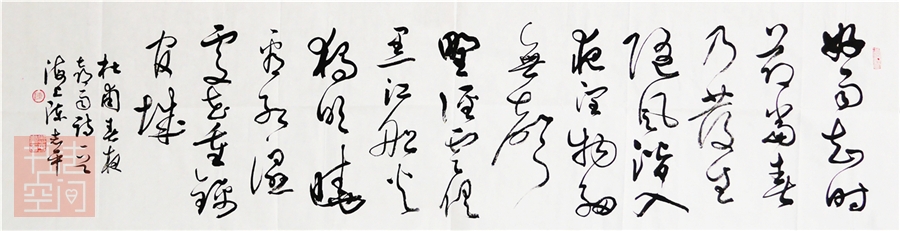 好雨知时
节當春
乃發生
随風潜入
夜润物细
無聲
野径云俱
黑江船火
独明晓
看红湿
處花重錦
官城
杜甫春夜
喜雨诗一首
海上陈志平
空间